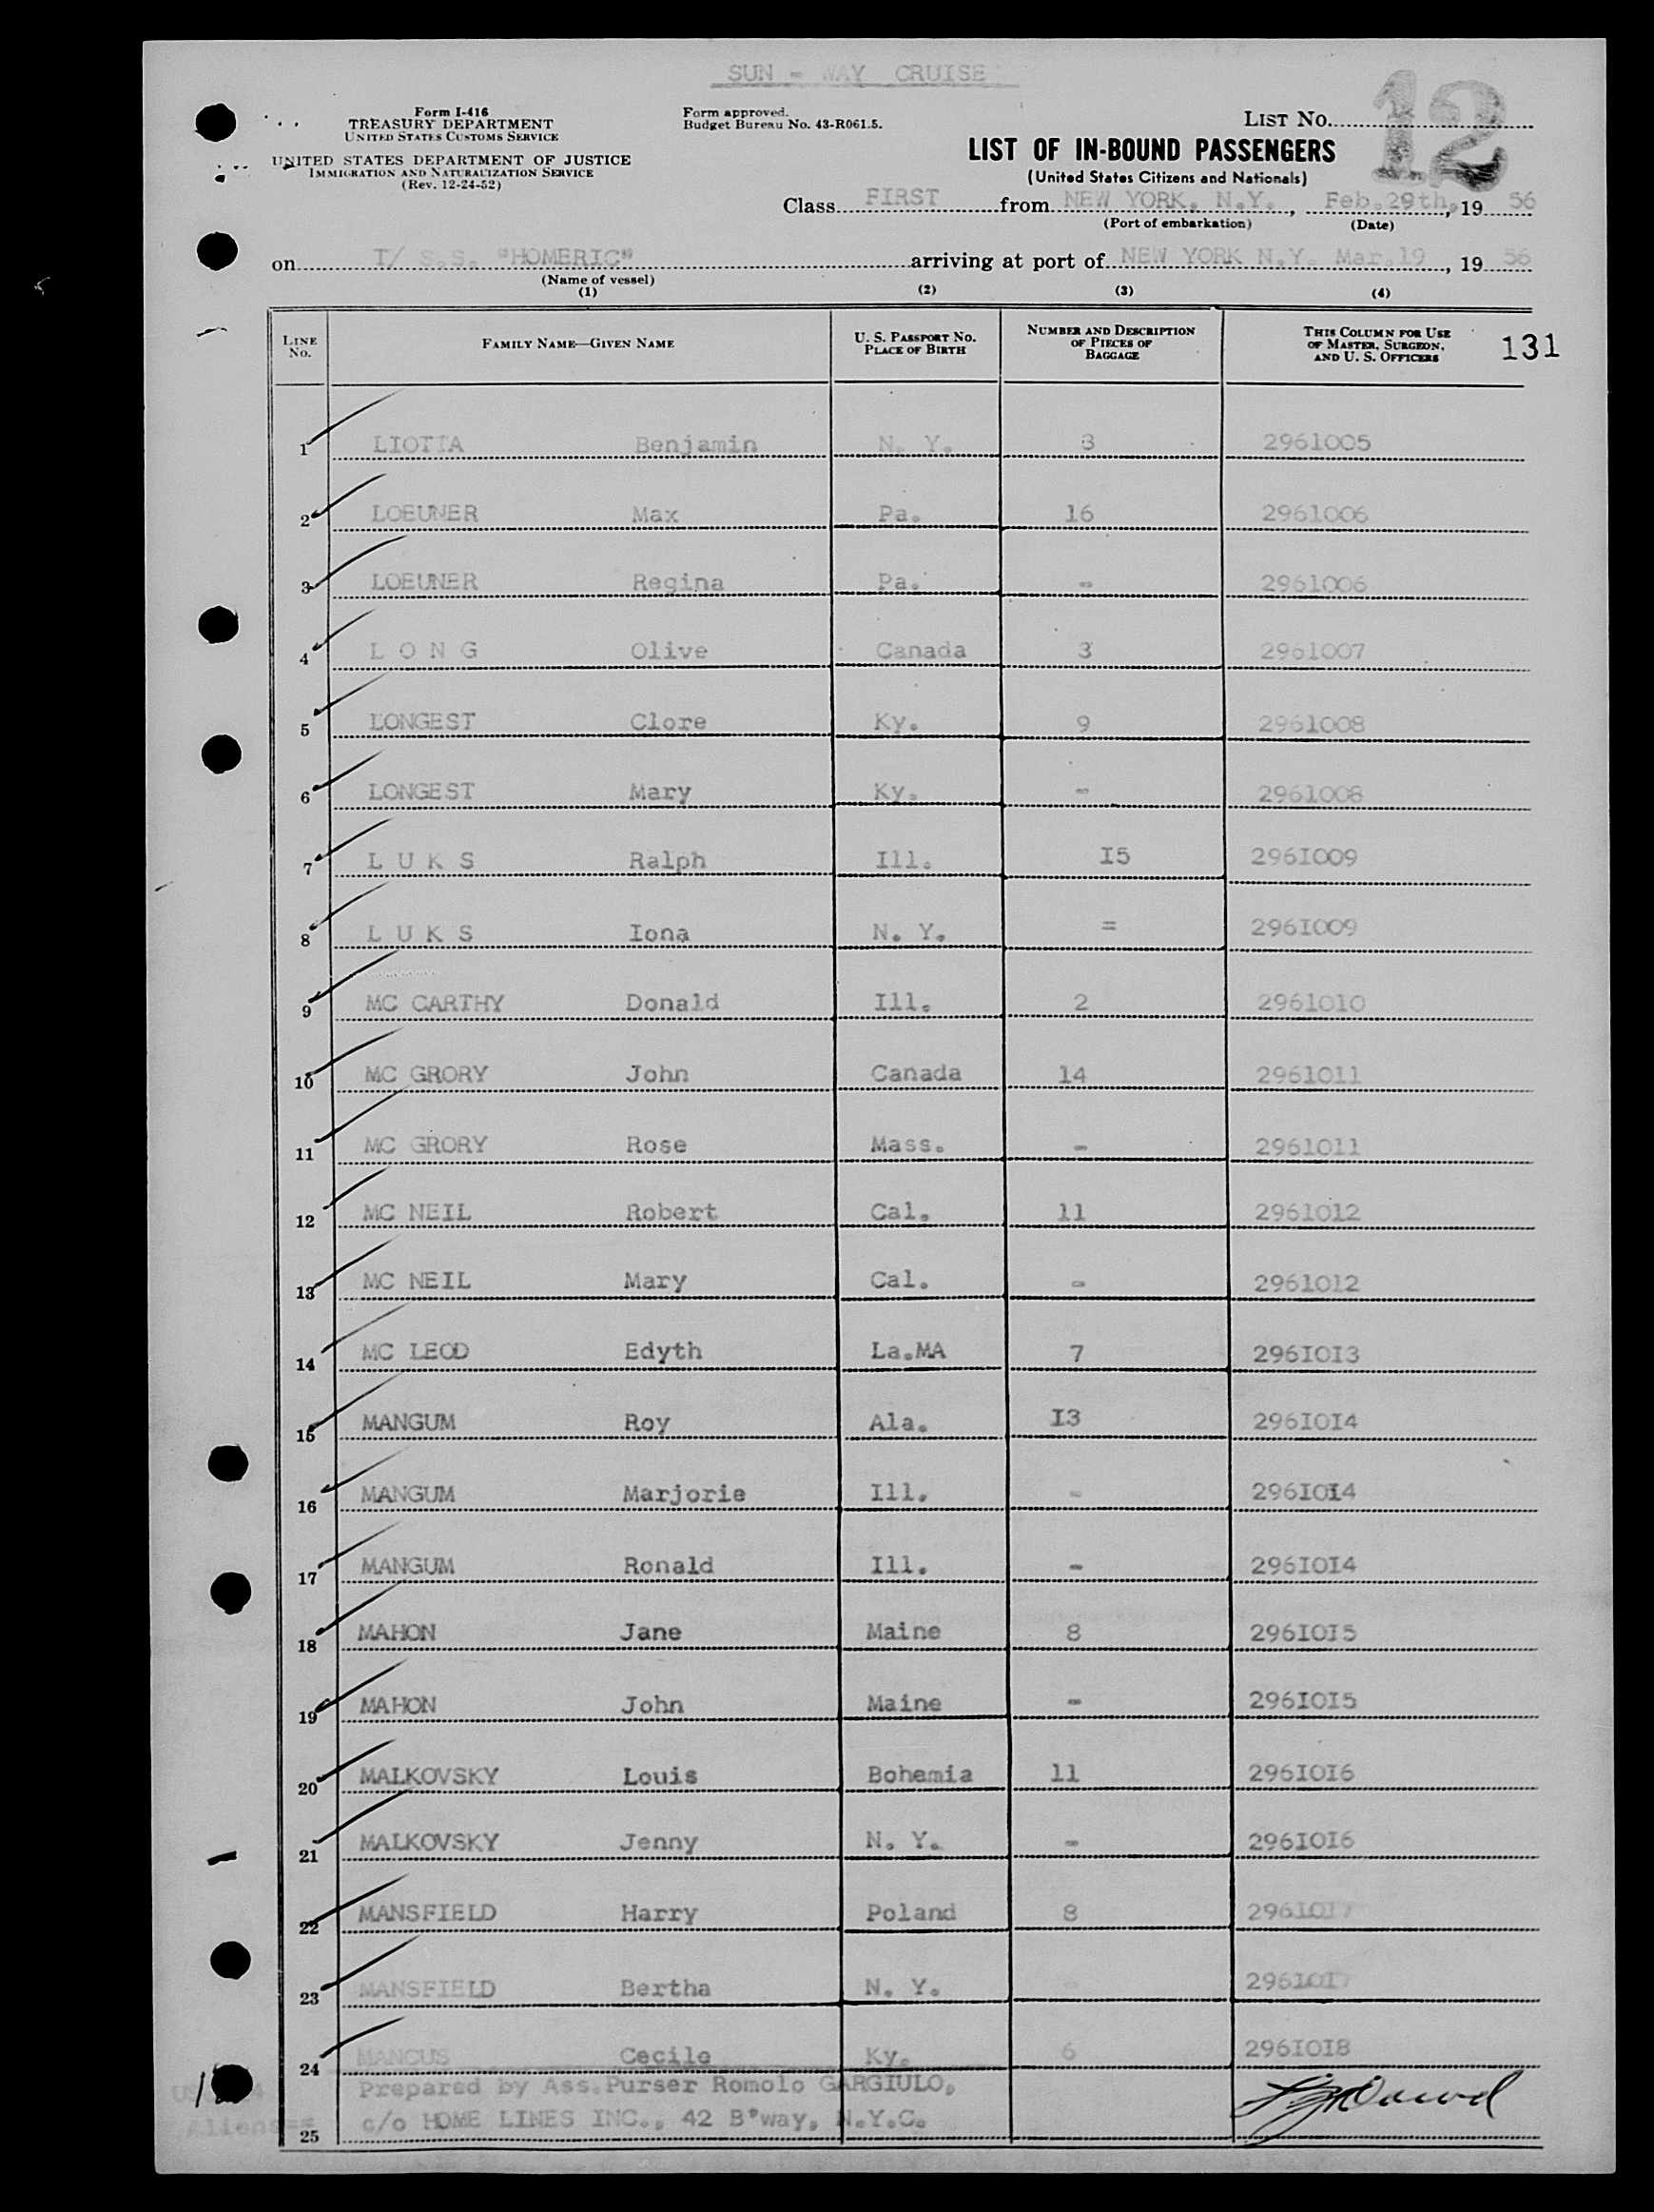 SUN - WAY CRUISE
Form I-416
TREASURY DEPARTMENT
UNITED STATES CUSTOMS SERVICE
UNITED STATES DEPARTMENT OF JUSTICE
IMMIGRATION AND NATURALIZATION SERVICE
(Rev. 12-24-52)
Form approved.
Budget Bureau No. 43-R061.5.
LIST NO. 12
LIST OF IN-BOUND PASSENGERS
(United States Citizens and Nationals)
Class FIRST from NEW YORK, N.Y., Feb.29th, 19 56
(Port of embarkation) (Date)
on T/ S.S. "HOMERIC" arriving at port of NEW YORK N.Y. Mar.19, 19 56
(Name of vessel)
(1) (2) (3) (4)
LINE NO. FAMILY NAME—GIVEN NAME U. S. PASSPORT NO. PLACE OF BIRTH NUMBER AND DESCRIPTION OF PIECES OF BAGGAGE THIS COLUMN FOR USE OF MASTER, SURGEON, AND U. S. OFFICERS 131
1 LIOTTA Benjamin N. Y. 3 2961005
2 LOEUNER Max Pa. 16 2961006
3 LOEUNER Regina Pa. - 2961006
4 L O N G Olive Canada 3 2961007
5 LONGEST Clore Ky. 9 2961008
6 LONGEST Mary Ky. - 2961008
7 L U K S Ralph Ill. I5 296I009
8 L U K S Iona N. Y. = 296I009
9 MC CARTHY Donald Ill. 2 2961010
10 MC GRORY John Canada 14 2961011
11 MC GRORY Rose Mass. - 2961011
12 MC NEIL Robert Cal. 11 2961012
13 MC NEIL Mary Cal. - 2961012
14 MC LEOD Edyth La.MA 7 296I0I3
15 MANGUM Roy Ala. I3 296I0I4
16 MANGUM Marjorie Ill. - 296I0I4
17 MANGUM Ronald Ill. - 296I0I4
18 MAHON Jane Maine 8 296I0I5
19 MAHON John Maine - 296I0I5
20 MALKOVSKY Louis Bohemia 11 296I0I6
21 MALKOVSKY Jenny N. Y. - 296I0I6
22 MANSFIELD Harry Poland 8 2961017
23 MANSFIELD Bertha N. Y. - 296I0I7
24 MANCUS Cecile Ky. 6 296I0I8
Prepared by Ass.Purser Romolo GARGIULO,
25 c/o HOME LINES INC., 42 B'way, N.Y.C.
Aliens